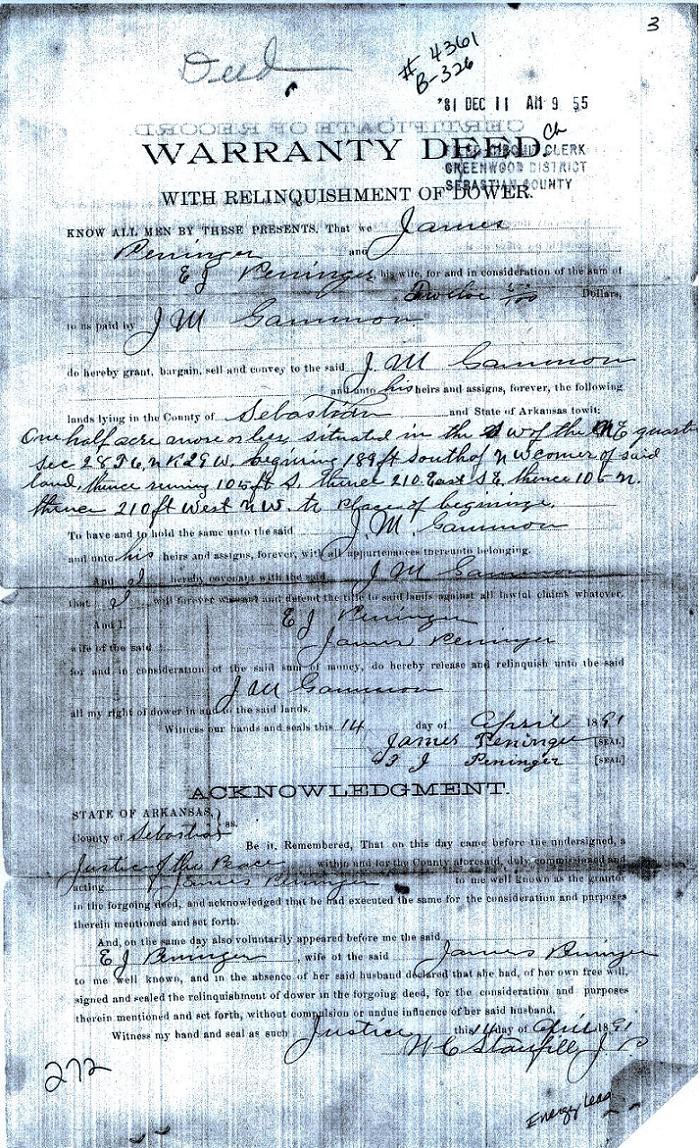 3
Deed
# 4361
B-326
'81 DEC 11 AM 9 55
CERTIFICATE OF RECORD
Ch
WARRANTY DEED.
CLERK
GREENWOOD DISTRICT
SEBASTIAN COUNTY
WITH RELINQUISHMENT OF DOWER.
KNOW ALL MEN BY THESE PRESENTS, That we James
Peninger and
E J Peninger his wife, for and in consideration of the sum of
Twelve Dollars,
to us paid by J M Gammon
do hereby grant, bargain, sell and convey to the said J. M Gammon
and unto his heirs and assigns, forever, the following
lands lying in the County of Sebastian and State of Arkansas towit;
One half acre more or less situated in the SW of the NE quart
sec 28 T 6, N R 29 W. begining 189 ft South of N W corner of said
land, thence runing 105 ft S. thence 210 East S E, thence 105 N.
thence 210 ft West N W. to place of begining.
To have and to hold the same unto the said J. M. Gammon
and unto his heirs and assigns, forever, with all appurtenances thereunto belonging.
And I hereby covenant with the said J M Gammon
that I will forever warrant and defend the title to said lands against all lawful claims whatever.
And I, E J Peninger
wife of the said James Peninger
for and in consideration of the said sum of money, do hereby release and relinquish unto the said
J M Gammon
all my right of dower in and to the said lands.
Witness our hands and seals this 14 day of April 1891
James Peninger [SEAL]
J Peninger [SEAL]
ACKNOWLEDGMENT.
STATE OF ARKANSAS, } ss.
County of Sebastian
Be it, Remembered, That on this day came before the undersigned, a
Justice of the Peace within and for the County aforesaid, duly commissioned and
acting James Peninger to me well known as the grantor
in the forgoing deed, and acknowledged that he had executed the same for the consideration and purposes
therein mentioned and set forth.
And, on the same day also voluntarily appeared before me the said
E J Peninger, wife of the said James Peninger
to me well known, and in the absence of her said husband declared that she had, of her own free will,
signed and sealed the relinquishment of dower in the forgoing deed, for the consideration and purposes
therein mentioned and set forth, without compulsion or undue influence of her said husband.
Witness my hand and seal as such Justice this 14 day of April 1891
W C Stanfill J P
272
Energy Leas